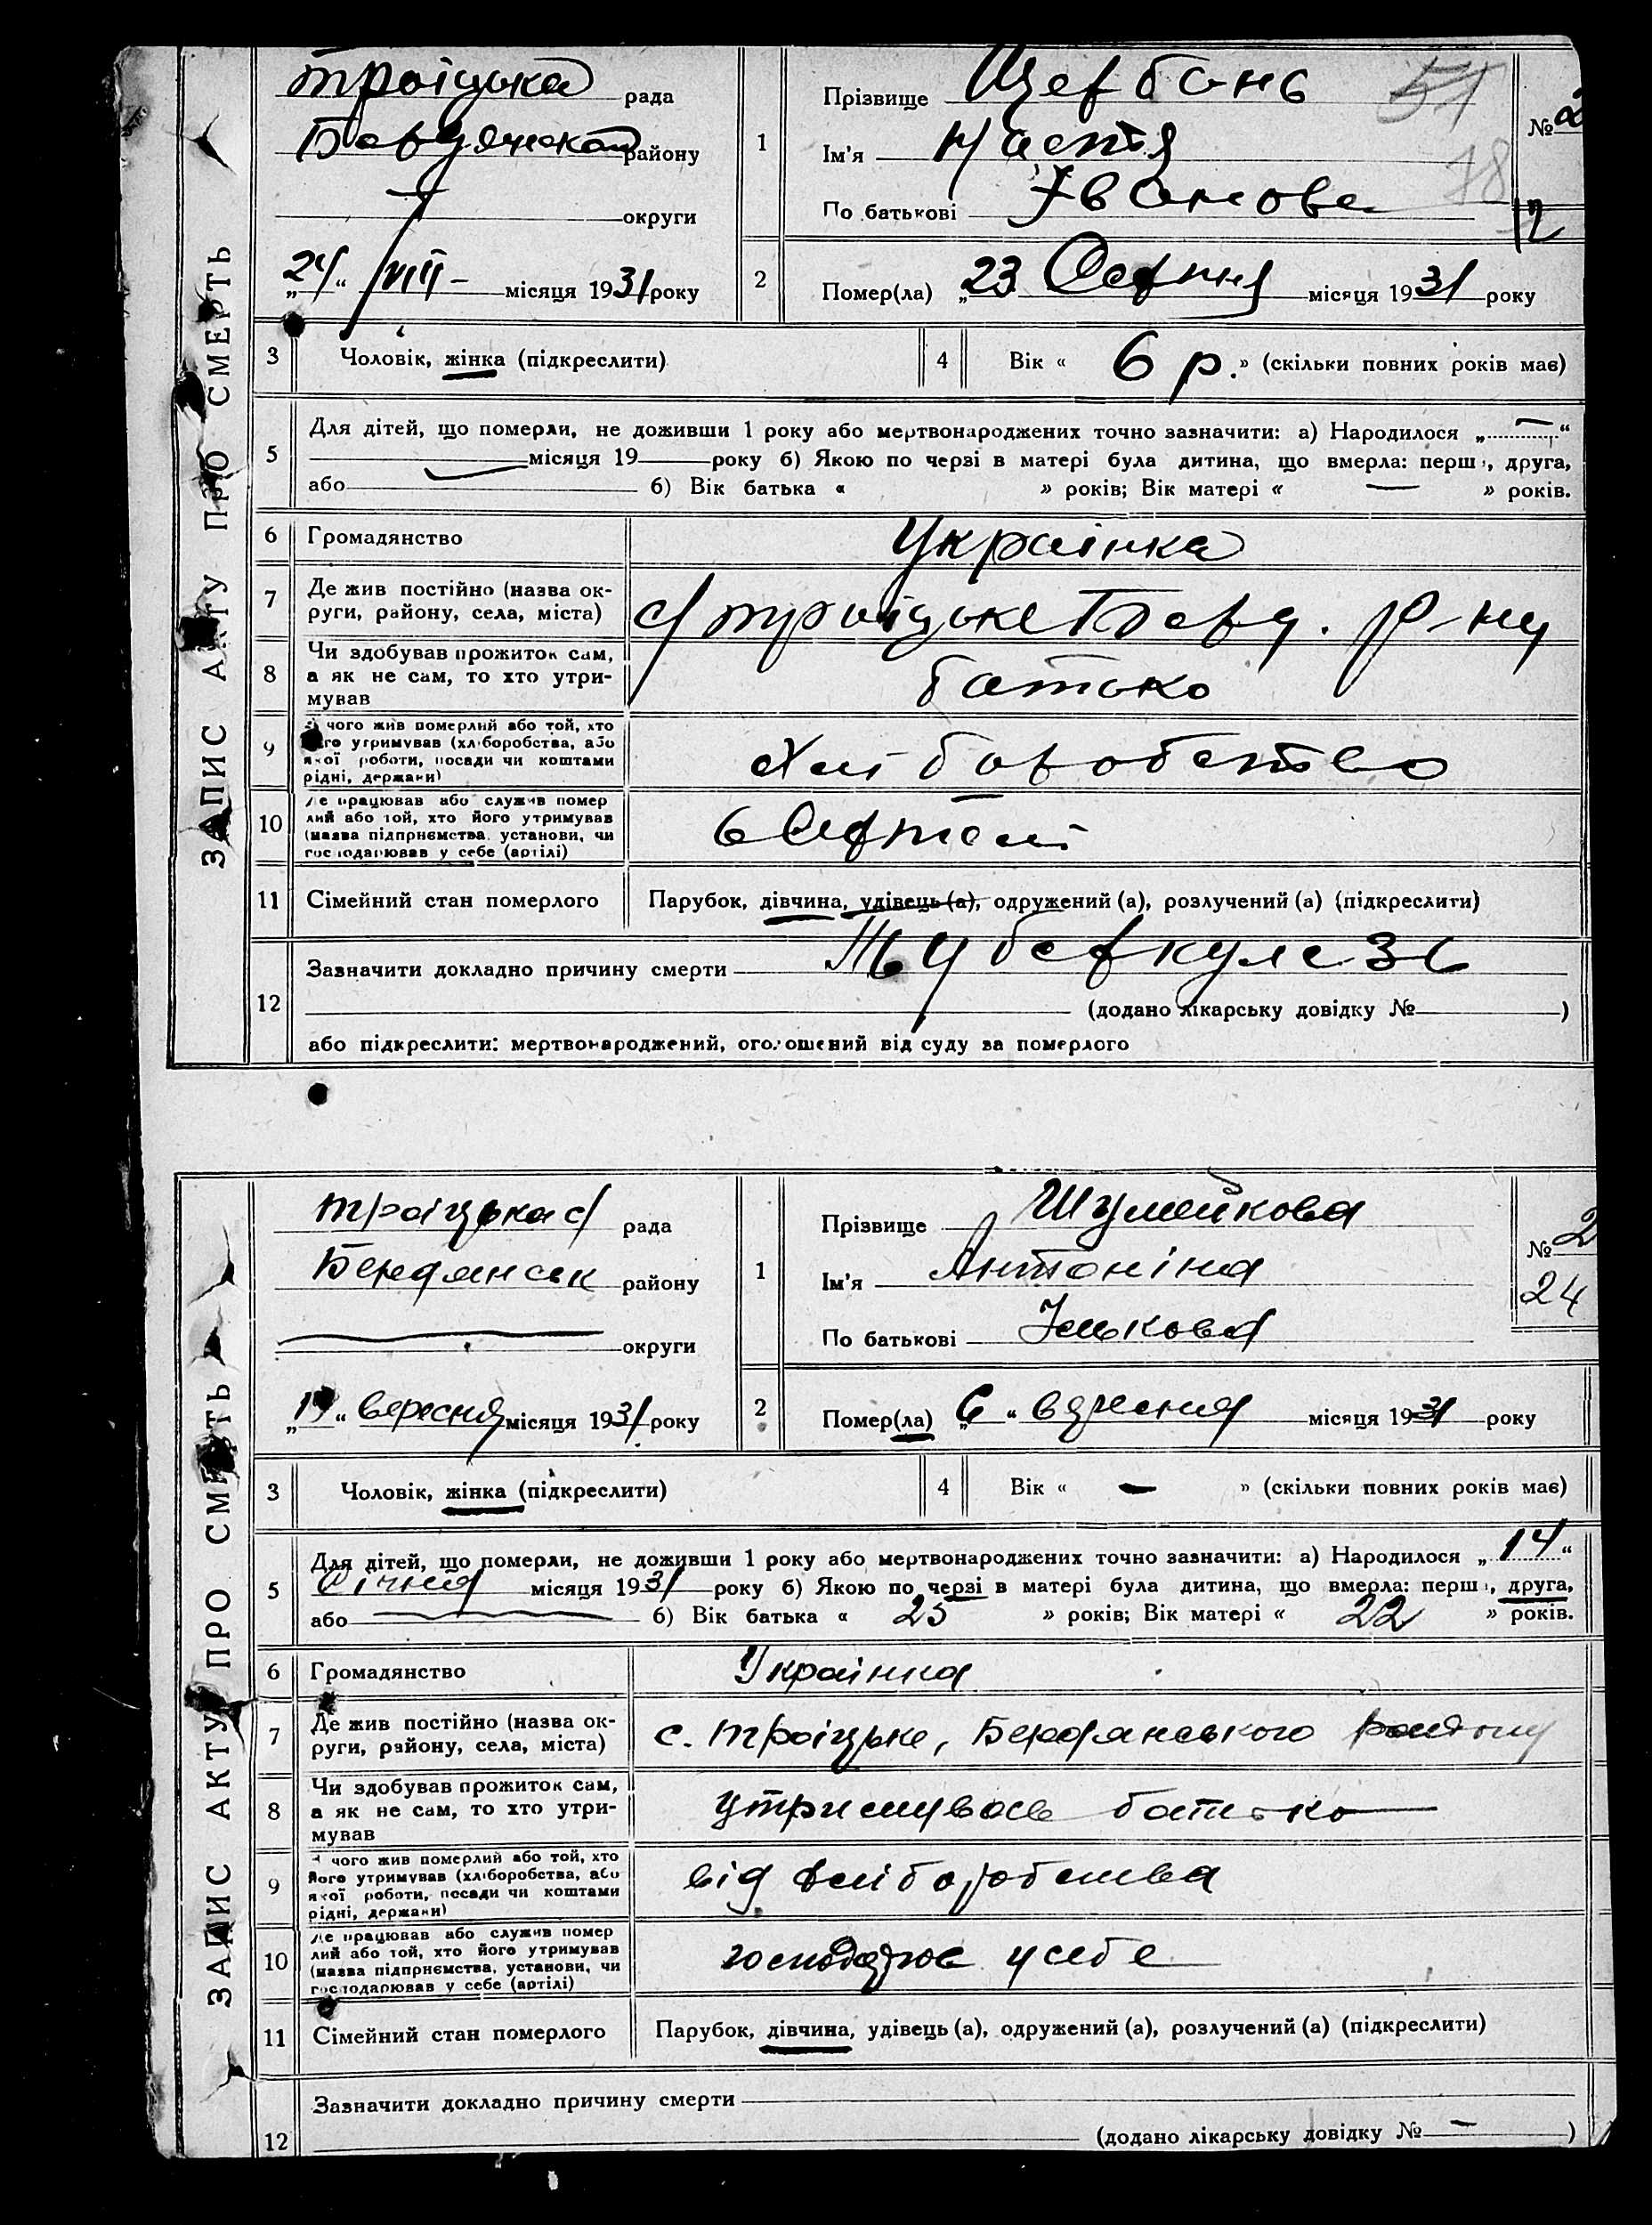 ЗАПИС АКТУ ПРО СМЕРТЬ
Троіцька рада
Бердянськ району
округи
„24“ VIII - місяця 1931 року
1
Прізвище Щербань
Ім'я Настя
По батькові Іванова
51
78
№ 2
12
2
Помер(ла) „23 Серпня місяця 1931 року
3 Чоловік, жінка (підкреслити)
4 Вік « 6 р. » (скільки повних років має)
5 Для дітей, що померли, не доживши 1 року або мертвонароджених точно зазначити: а) Народилося „ — “
місяця 19 року б) Якою по черзі в матері була дитина, що вмерла: перш , друга,
або б) Вік батька « » років; Вік матері « — » років.
6 Громадянство Украінка
7 Де жив постійно (назва ок-
руги, району, села, міста) с/ Троіцьке Берд. р-ну
8 Чи здобував прожиток сам,
а як не сам, то хто утри-
мував батько
9 З чого жив померлий або той, хто
його утримував (хліборобства, або
якої роботи, посади чи коштами
рідні, держави) Хліборобство
10 Де працював або служив помер
лий або той, хто його утримував
(назва підприємства, установи, чи
господарював у себе (артілі) в Артелі
11 Сімейний стан померлого Парубок, дівчина, удівець (а), одружений (а), розлучений (а) (підкреслити)
12 Зазначити докладно причину смерти Туберкулезь
(додано лікарську довідку № )
або підкреслити: мертвонароджений, оголошений від суду за померлого
ЗАПИС АКТУ ПРО СМЕРТЬ
Троіцька с/ рада
Бердянськ району
округи
„19“ вересня місяця 1931 року
1
Прізвище Шумейкова
Ім'я Антоніна
По батькові Ількова
№ 2
24
2
Помер(ла) „6“ вересня місяця 1931 року
3 Чоловік, жінка (підкреслити)
4 Вік « — » (скільки повних років має)
5 Для дітей, що померли, не доживши 1 року або мертвонароджених точно зазначити: а) Народилося „14“
Січня місяця 1931 року б) Якою по черзі в матері була дитина, що вмерла: перш , друга,
або б) Вік батька « 25 » років; Вік матері « 22 » років.
6 Громадянство Украінка
7 Де жив постійно (назва ок-
руги, району, села, міста) с. Троіцьке, Бердянського району
8 Чи здобував прожиток сам,
а як не сам, то хто утри-
мував утримувавсь батько
9 З чого жив померлий або той, хто
його утримував (хліборобства, або
якої роботи, посади чи коштами
рідні, держави) від хліборобства
10 Де працював або служив помер
лий або той, хто його утримував
(назва підприємства, установи, чи
господарював у себе (артілі) господарює у себе
11 Сімейний стан померлого Парубок, дівчина, удівець (а), одружений (а), розлучений (а) (підкреслити)
12 Зазначити докладно причину смерти
(додано лікарську довідку № — )